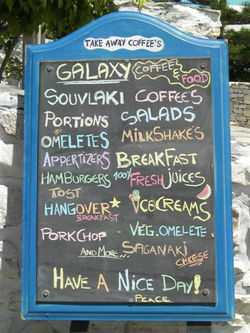 TAKE AWAY COFFEE'S
GALAXY COFFEES & FOOD
SOUVLAKI COFFEES
PORTIONS SALADS
OMELETES MILKSHAKES
APPERTIZERS BREAKFAST
HAMBURGERS 100% FRESH JUICES
TOST
HANGOVER BREAKFAST ICECREAMS
PORKCHOP VEG. OMELETE
AND MORE... SAGANAKI CHEESE
HAVE A NICE DAY!
PEACE